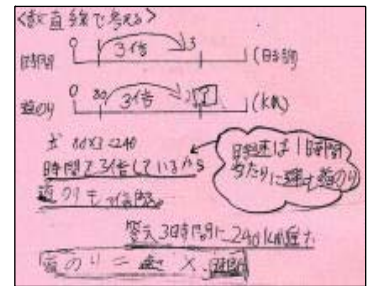 <数直線で考える>
時間 0 1 3倍 3 (時間)
道のり 0 80 3倍 ? (km)
式 80×3=240
時間で3倍しているから
道のりも3倍する。
時速は1時間
当たりに進む道のり
答え 3時間に240km進む
道のり= × 時間